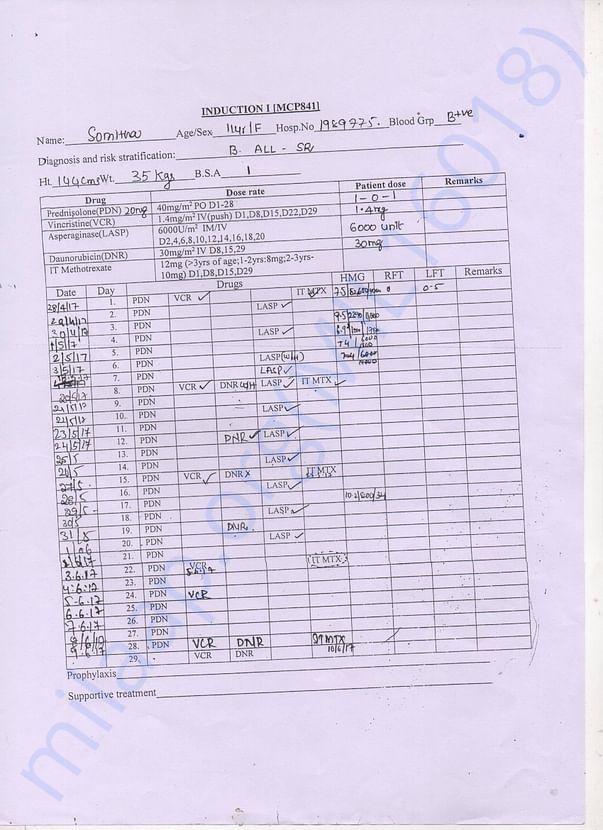 INDUCTION I [MCP841]
Name: Age/Sex 11yr/F Hosp.No 1989775. Blood Grp B+ve
Diagnosis and risk stratification: B ALL - SR
Ht. 144cms Wt. 35 Kgs B.S.A 1
Drug Dose rate Patient dose Remarks
Prednisolone(PDN) 20mg 40mg/m² PO D1-28 1-0-1
Vincristine(VCR) 1.4mg/m² IV(push) D1,D8,D15,D22,D29 1.4mg
Asparaginase(LASP) 6000U/m² IM/IV 6000 unit
D2,4,6,8,10,12,14,16,18,20
Daunorubicin(DNR) 30mg/m² IV D8,15,29 30mg
IT Methotrexate 12mg (>3yrs of age;1-2yrs:8mg;2-3yrs-
10mg) D1,D8,D15,D29
Date Day Drugs HMG RFT LFT Remarks
28/4/17 1. PDN VCR ✓ IT MTX 0.5
29/4/17 2. PDN LASP ✓
30/4/17 3. PDN
1/5/17 4. PDN LASP ✓
2/5/17 5. PDN
3/5/17 6. PDN LASP(W/H)
7. PDN LASP ✓
20/5/17 8. PDN VCR ✓ DNR W/H LASP ✓ IT MTX ✓
21/5/17 9. PDN
22/5/17 10. PDN LASP ✓
23/5/17 11. PDN
24/5/17 12. PDN DNR ✓ LASP ✓
25/5 13. PDN
26/5 14. PDN LASP ✓
27/5 15. PDN VCR ✓ DNR X IT MTX
28/5 16. PDN LASP ✓
29/5 17. PDN
30/5 18. PDN LASP ✓
31/5 19. PDN DNR
1/06 20. PDN LASP ✓
21. PDN
3.6.17 22. PDN VCR IT MTX
4.6.17 23. PDN
5.6.17 24. PDN VCR
6.6.17 25. PDN
7.6.17 26. PDN
27. PDN
28. PDN VCR DNR IT MTX
10/6/17
29. VCR DNR
Prophylaxis
Supportive treatment